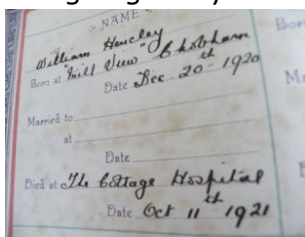 NAME
William Hencley
Born at Mill View Chobham
Date Dec 20th 1920
Married to
at
Date
Died at The Cottage Hospital
Date Oct 11th 1921
Born